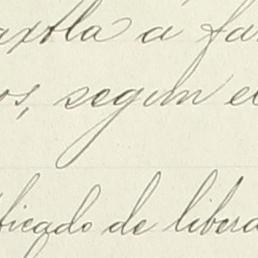 axtla á fa
os, segun e
ficado de libera